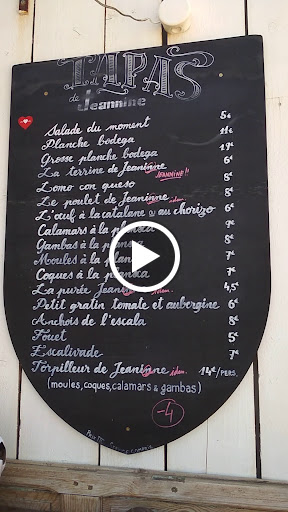 TAPAS
de Jeannine
Salade du moment 5€
Planche bodega 11€
Grosse planche bodega 19€
La terrine de Jeaninne JEANNINE!! 6€
Lomo con queso 8€
Le poulet de Jeaninne idem. 8€
L'œuf à la catalane ou au chorizo 6€
Calamars à la planxa 9€
Gambas à la planxa 8€
Moules à la planxa 7€
Coques à la planxa 7€
La purée Jeaninne idem. 4,5€
Petit gratin tomate et aubergine 6€
Anchois de l'escala 8€
Fouet 5€
Escalivade 7€
Torpilleur de Jeaninne idem. 14€/PERS.
(moules, coques, calamars & gambas)
-4